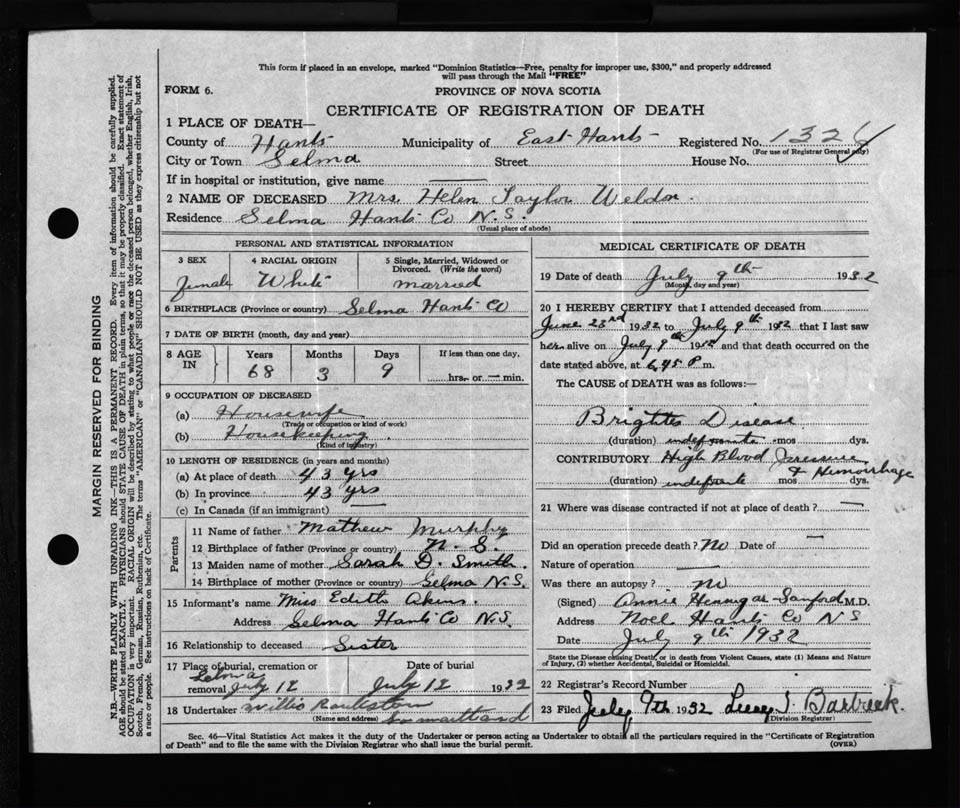 This form if placed in an envelope, marked "Dominion Statistics—Free, penalty for improper use, $300," and properly addressed
will pass through the Mail "FREE"
FORM 6.
PROVINCE OF NOVA SCOTIA
CERTIFICATE OF REGISTRATION OF DEATH
1 PLACE OF DEATH—
County of Hants Municipality of East Hants Registered No. 1324
(For use of Registrar General only)
City or Town Selma Street House No.
If in hospital or institution, give name
2 NAME OF DECEASED Mrs. Helen Taylor Weldon.
Residence Selma Hants Co N.S.
(Usual place of abode)
PERSONAL AND STATISTICAL INFORMATION
3 SEX 4 RACIAL ORIGIN 5 Single, Married, Widowed or
Divorced. (Write the word)
female White married
6 BIRTHPLACE (Province or country) Selma Hants Co
7 DATE OF BIRTH (month, day and year)
8 AGE IN Years Months Days If less than one day,
68 3 9 hrs. or — min.
9 OCCUPATION OF DECEASED
(a) Housewife
(Trade or occupation or kind of work)
(b) Housekeeping.
(Kind of industry)
10 LENGTH OF RESIDENCE (in years and months)
(a) At place of death 43 yrs
(b) In province 43 yrs
(c) In Canada (if an immigrant)
Parents
11 Name of father Mathew Murphy
12 Birthplace of father (Province or country) N. S.
13 Maiden name of mother Sarah D. Smith.
14 Birthplace of mother (Province or country) Selma N.S.
15 Informant's name Miss Edith Akins.
Address Selma Hants Co N.S.
16 Relationship to deceased Sister
17 Place of burial, cremation or Date of burial
Selma
removal July 12 July 12 1932
18 Undertaker Willis
(Name and address)
MEDICAL CERTIFICATE OF DEATH
19 Date of death July 9th 1932
(Month, day and year)
20 I HEREBY CERTIFY that I attended deceased from
June 23rd 1932 to July 9th 1932 that I last saw
her alive on July 9th 1932 and that death occurred on the
date stated above, at 6.45 P m.
The CAUSE of DEATH was as follows:
Brights Disease
(duration) indefinite mos dys.
CONTRIBUTORY High Blood Pressure
& Hemorrhage
(duration) indefinite mos dys.
21 Where was disease contracted if not at place of death? —
Did an operation precede death? No Date of —
Nature of operation —
Was there an autopsy? no
(Signed) Annie Hennigar-Sanford M.D.
Address Noel Hants Co N S
Date July 9th 1932
State the Disease causing Death, or in death from Violent Causes, state (1) Means and Nature
of Injury, (2) whether Accidental, Suicidal or Homicidal.
22 Registrar's Record Number
23 Filed July 9th 1932
(Division Registrar)
Sec. 46—Vital Statistics Act makes it the duty of the Undertaker or person acting as Undertaker to obtain all the particulars required in the "Certificate of Registration
of Death" and to file the same with the Division Registrar who shall issue the burial permit. (OVER)
MARGIN RESERVED FOR BINDING
N.B.—WRITE PLAINLY WITH UNFADING INK—THIS IS A PERMANENT RECORD. Every item of information should be carefully supplied.
AGE should be stated EXACTLY. PHYSICIANS should STATE CAUSE OF DEATH in plain terms, so that it may be properly classified. Exact statement of
OCCUPATION is very important. RACIAL ORIGIN will be described by stating to what people or race the deceased person belonged, whether English, Irish,
Scotch, French, German, Russian, Ruthenian, etc. The terms "AMERICAN" or "CANADIAN" SHOULD NOT BE USED as they express citizenship but not
a race or people. See instructions on back of Certificate.